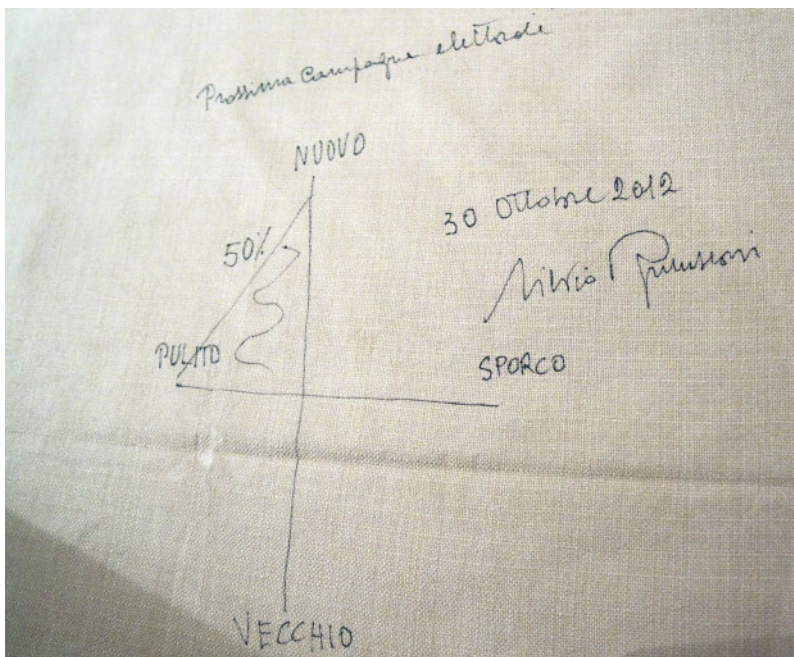 Prossima Campagna elettorale
NUOVO
30 Ottobre 2012
50%
Silvio Berlusconi
PULITO
SPORCO
VECCHIO